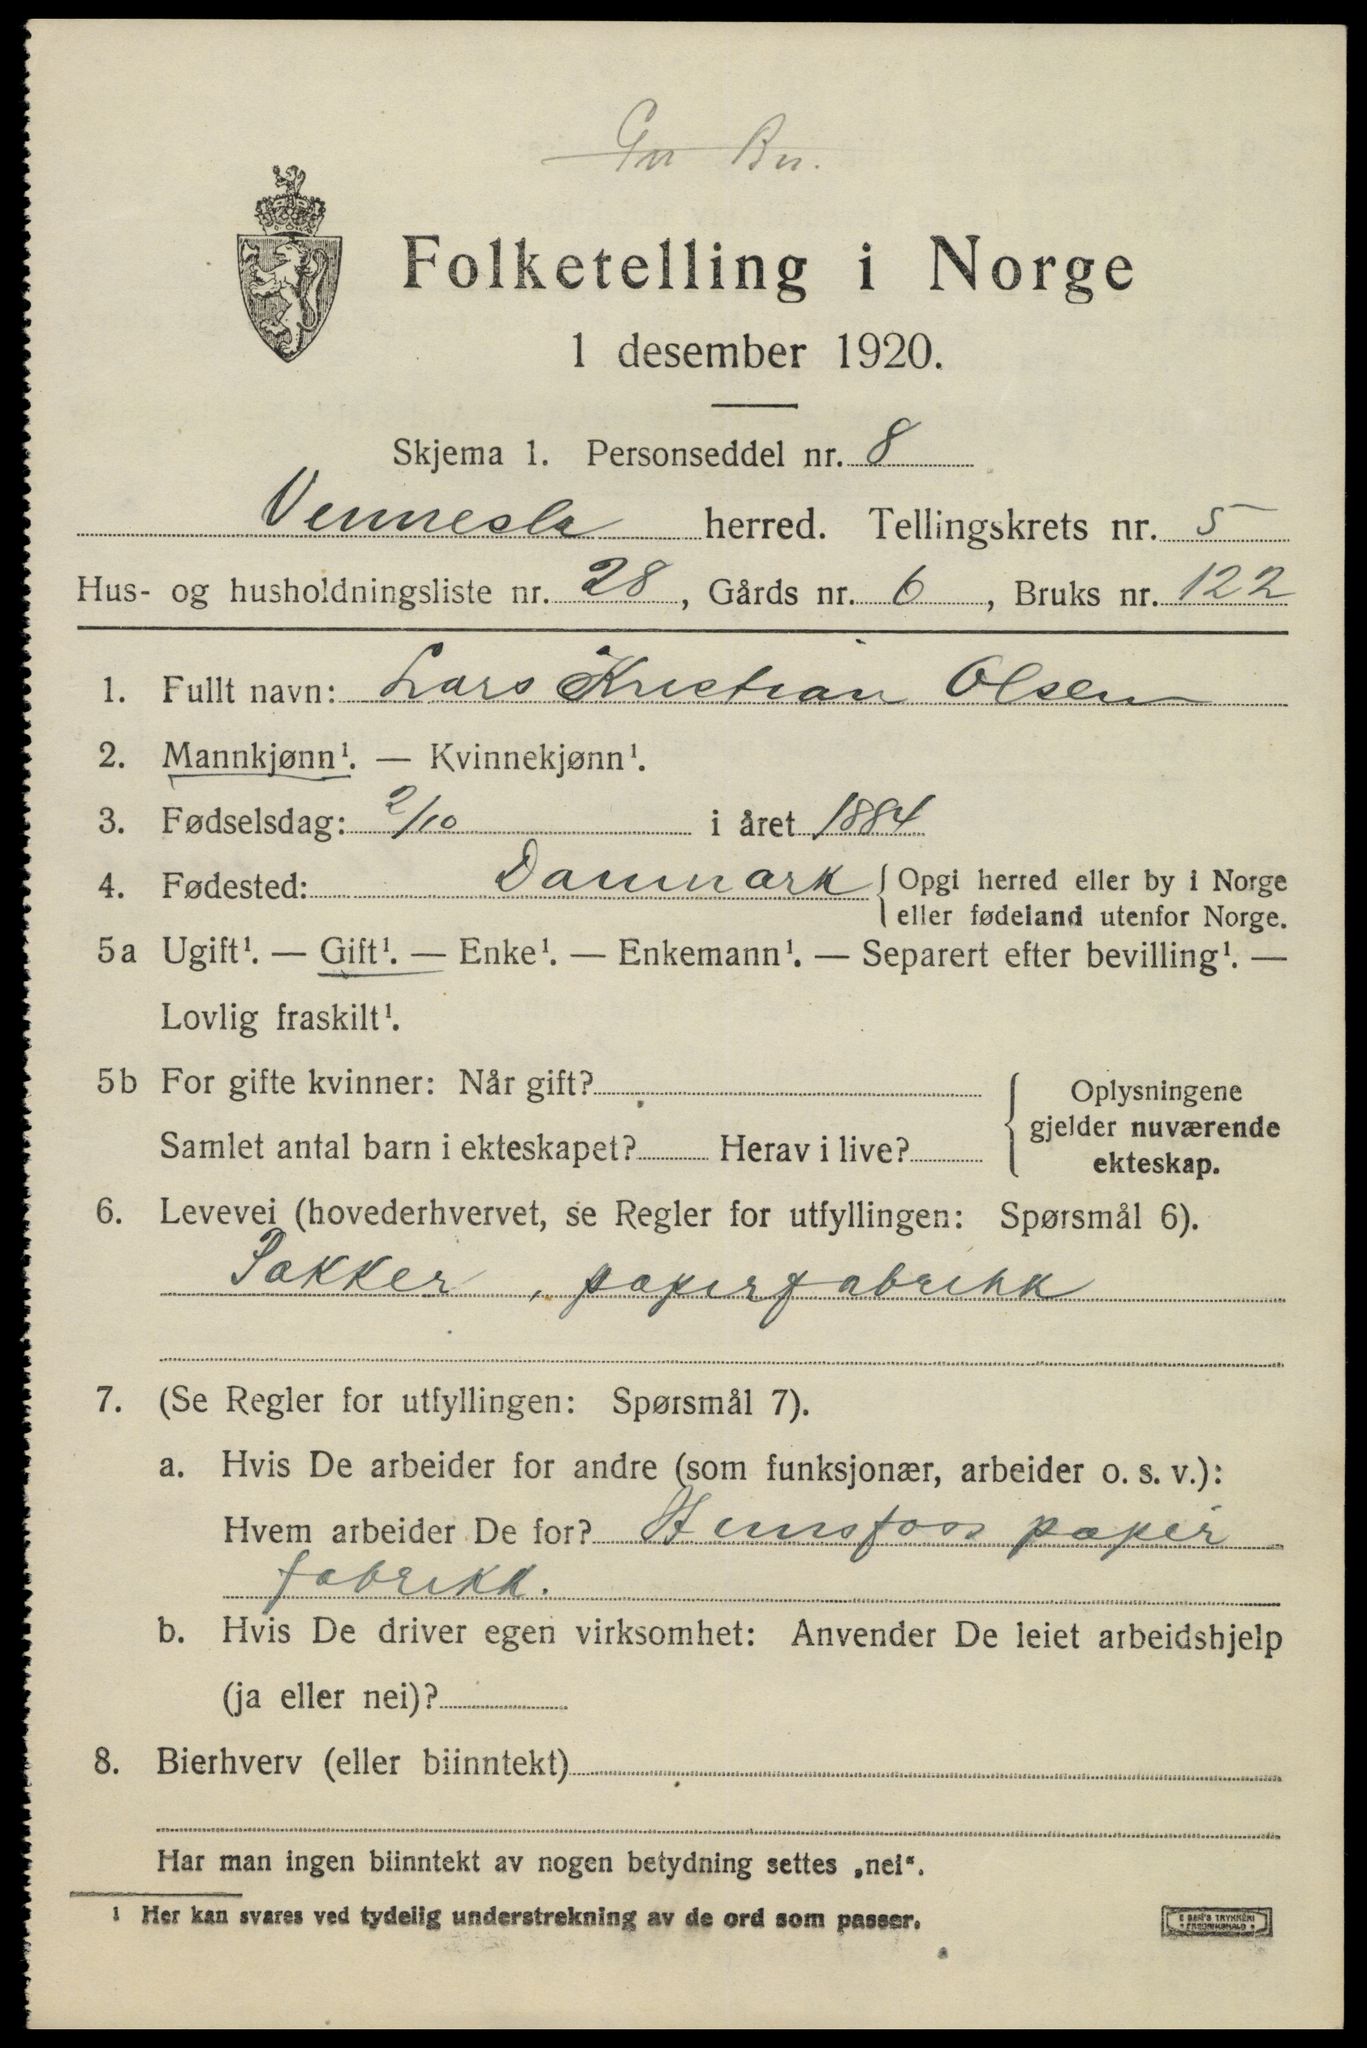 Gn Bn.
Folketelling i Norge
1 desember 1920.
Skjema 1. Personseddel nr. 8
Vennesla herred. Tellingskrets nr. 5
Hus- og husholdningsliste nr. 28, Gårds nr. 6, Bruks nr. 122
1. Fullt navn: Lars Kristian Olsen
2. Mannkjønn¹. — Kvinnekjønn¹.
3. Fødselsdag: 2/10 i året 1884
4. Fødested: Danmark { Opgi herred eller by i Norge
eller fødeland utenfor Norge.
5a Ugift¹. — Gift¹. — Enke¹. — Enkemann¹. — Separert efter bevilling¹. —
Lovlig fraskilt¹.
5b For gifte kvinner: Når gift?
Samlet antal barn i ekteskapet? Herav i live?
Oplysningene
gjelder nuværende
ekteskap.
6. Levevei (hovederhvervet, se Regler for utfyllingen: Spørsmål 6).
Pakker, papirfabrikk
7. (Se Regler for utfyllingen: Spørsmål 7).
a. Hvis De arbeider for andre (som funksjonær, arbeider o. s. v.):
Hvem arbeider De for? Hunsfoss papir
fabrikk.
b. Hvis De driver egen virksomhet: Anvender De leiet arbeidshjelp
(ja eller nei)?
8. Bierhverv (eller biinntekt)
Har man ingen biinntekt av nogen betydning settes „nei“.
¹ Her kan svares ved tydelig understrekning av de ord som passer.